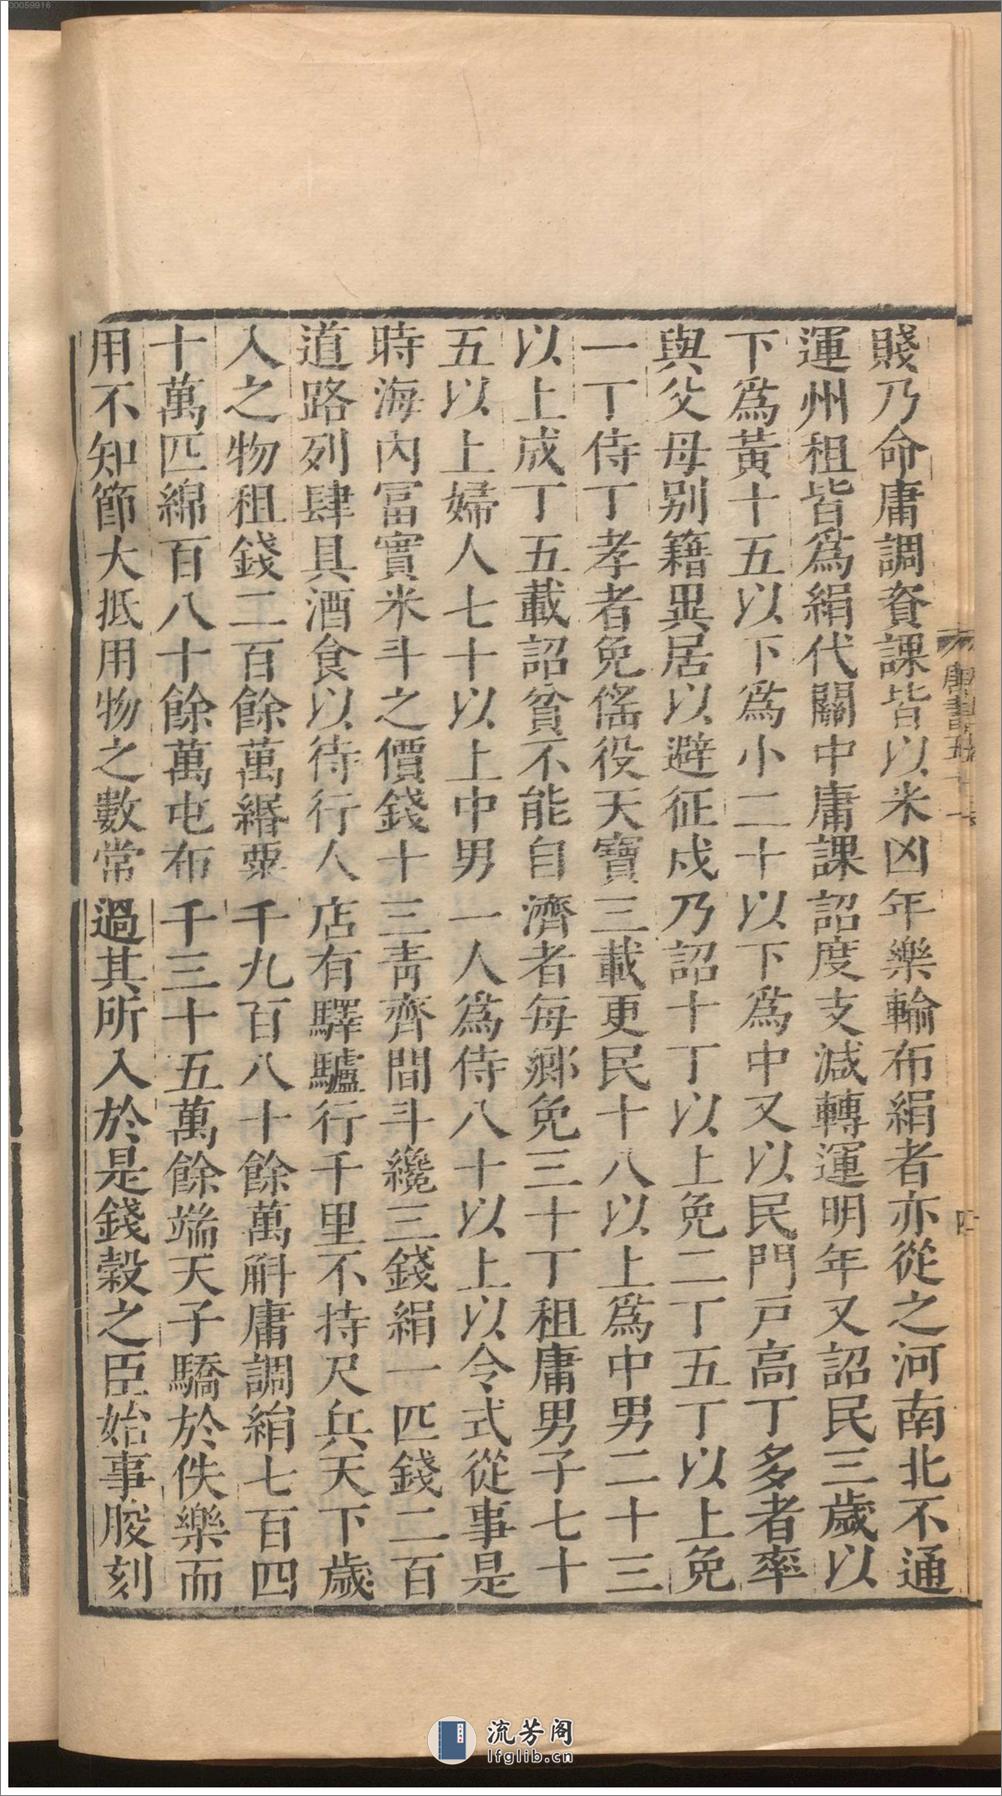 賤乃命庸調資課皆以米凶年樂輸布絹者亦從之河南北不通
運州租皆爲絹代關中庸課詔度支減轉運明年又詔民三歲以
下爲黃十五以下爲小二十以下爲中又以民門戶高丁多者率
與父母别籍異居以避征戍乃詔十丁以上免二丁五丁以上免
一丁侍丁孝者免傜役天寶三載更民十八以上爲中男二十三
以上成丁五載詔貧不能自濟者每鄉免三十丁租庸男子七十
五以上婦人七十以上中男一人爲侍八十以上以令式從事是
時海內富實米斗之價錢十三青齊間斗纔三錢絹一匹錢二百
道路列肆具酒食以待行人店有驛驢行千里不持尺兵天下歲
入之物租錢二百餘萬緡粟千九百八十餘萬斛庸調絹七百四
十萬匹綿百八十餘萬屯布千三十五萬餘端天子驕於佚樂而
用不知節大抵用物之數常過其所入於是錢穀之臣始事朘刻
四
流芳阁
lfglib.cn
00059916